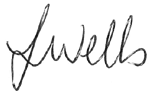 J Wells